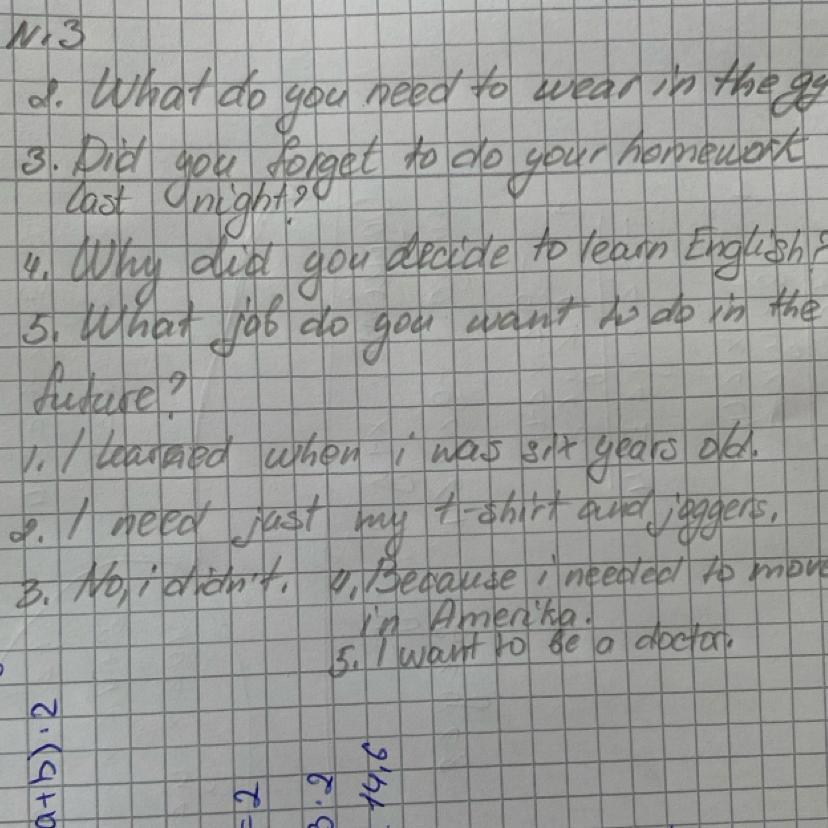 N.3
2. What do you need to wear in the gy
3. Did you forget to do your homework
last night?
4. Why did you decide to learn English?
5. What job do you want to do in the
future?
1. I learned when i was six years old.
2. I need just my t-shirt and joggers.
3. No, i didn't. 4. Because i needed to move
in Amerika.
5. I want to be a doctor.
a+b).2
=2
3.2
14,6